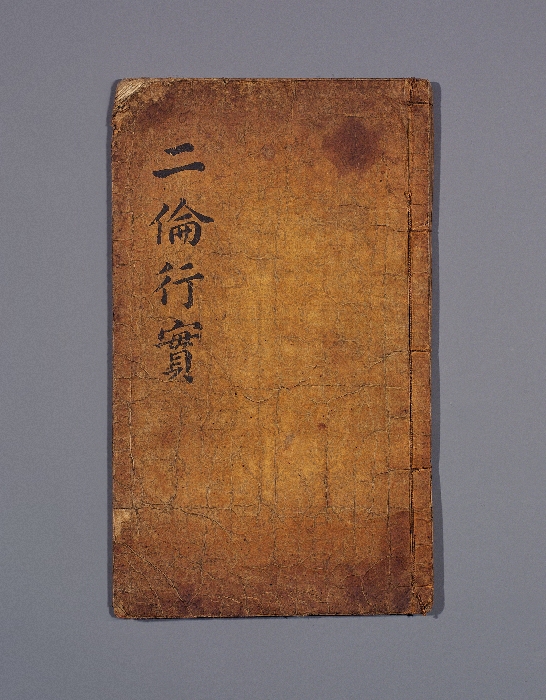 二倫行實